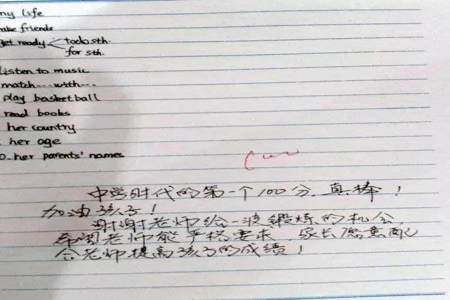 my life
make friends
get ready
to do sth.
for sth.
listen to music
match...with...
play basketball
read books
her country
her age
0. her parents' names
中学时代的第一个100分，真棒！
加油孩子！
谢谢老师给一次锻炼的机会，
希望老师能严格要求，家长愿意配
合老师提高孩子的成绩！